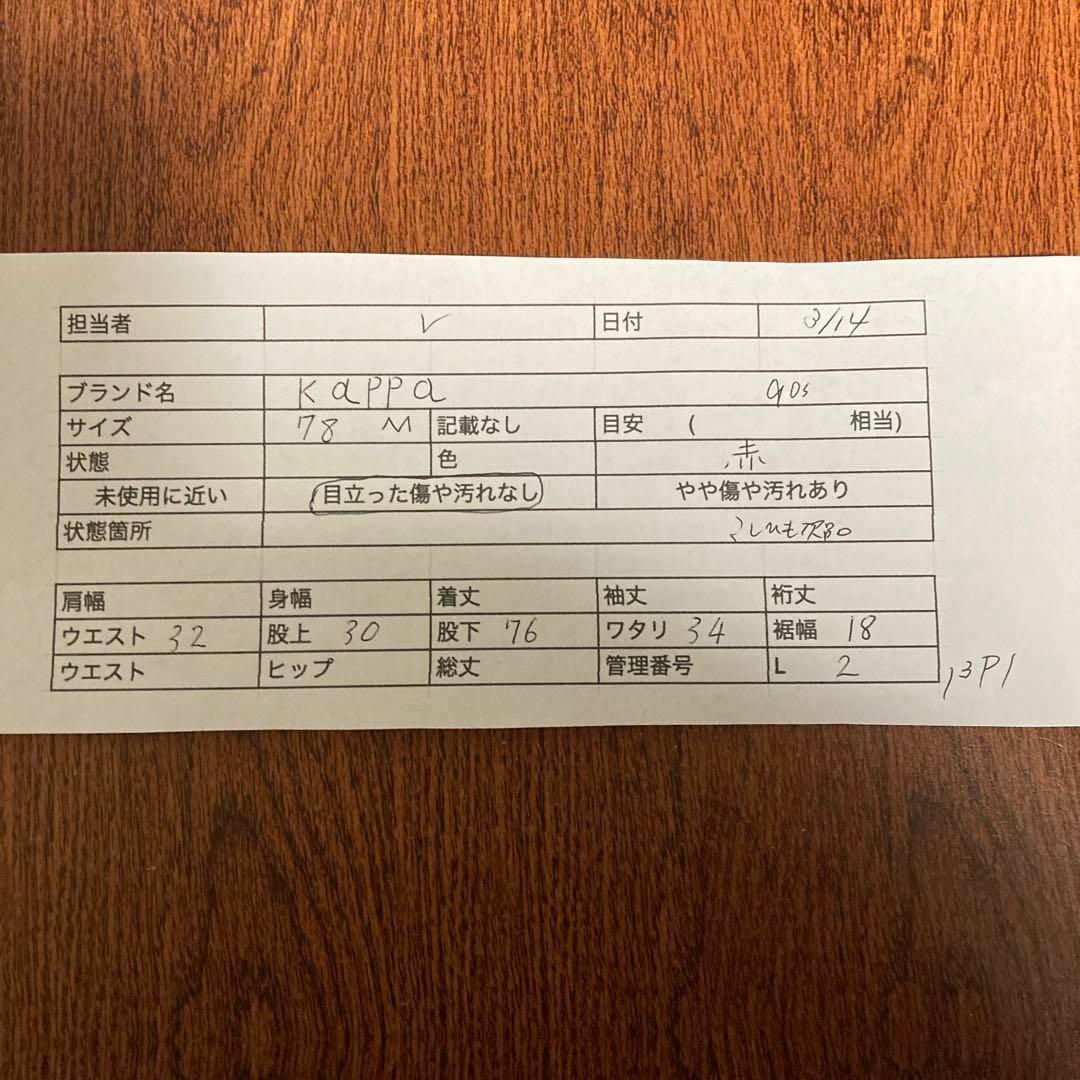 担当者 V 日付 3/14
ブランド名 Kappa 90s
サイズ 78 M 記載なし 目安 ( 相当)
状態 色 赤
未使用に近い 目立った傷や汚れなし やや傷や汚れあり
状態箇所
肩幅 身幅 着丈 袖丈 裄丈
ウエスト 32 股上 30 股下 76 ワタリ 34 裾幅 18
ウエスト ヒップ 総丈 管理番号 L 2